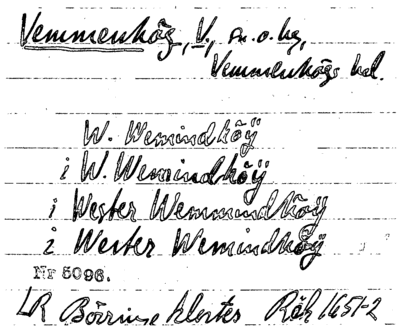 Vemmenhög, V., sn. o. by,
Vemmenhögs hd.
W. Wemindhöÿ
i W. Wemindhöÿ
i Wester Wemmindhöÿ
i Wester Wemindhöÿ
Nr 5096.
LR Börringe klosters Räk 1651-2